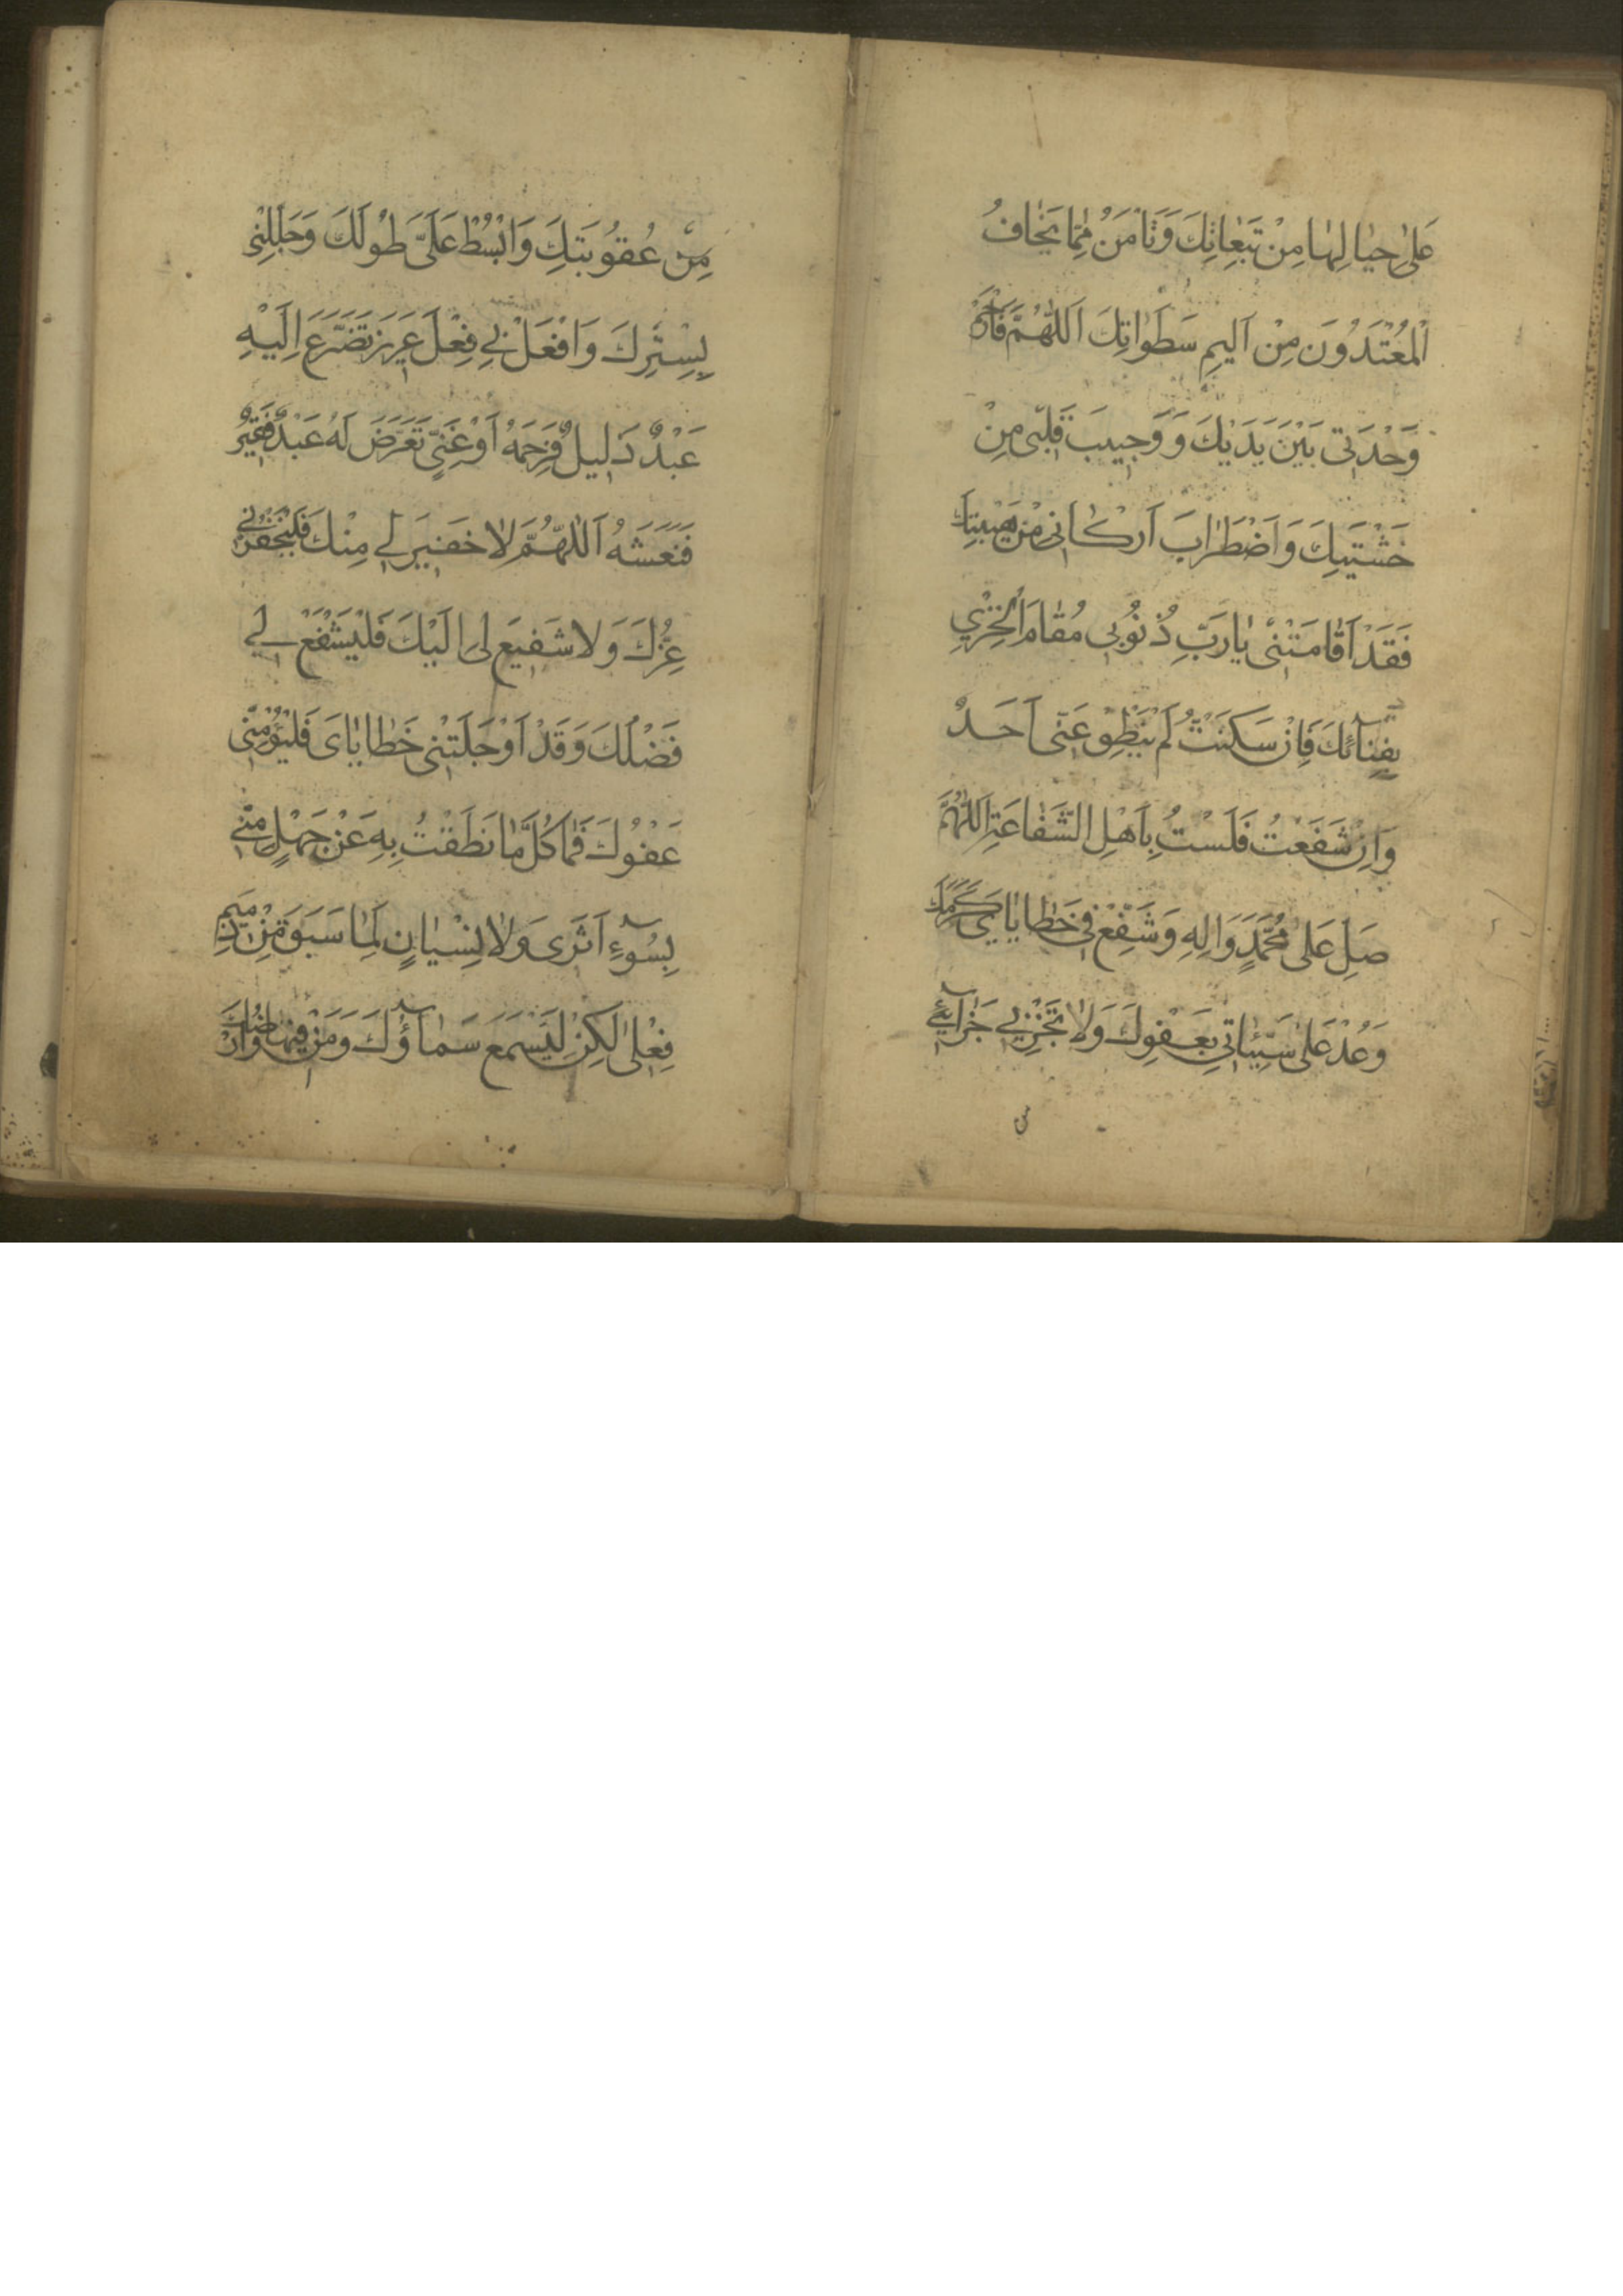 عَلىٰ حِيٰا لِهٰا مِنْ تَبِعٰاتِكَ وَتَأمَنُ مِمّٰا يَخٰافُ
اَلْمُعْتَدُونَ مِنْ اَلیمِ سَطَوٰاتِكَ اَللّٰهُمَّ فَارْحَمْ
وَحْدَتی بَیْنَ یَدَیْكَ وَ وَجِیبَ قَلْبی مِنْ
خَشْيَتِكَ وَ اضْطِرٰابَ اَرْكٰانی مِنْ هَيْبَتِكَ
فَقَدْ اَقٰامَتْنی یٰا رَبِّ ذُنُوبی مُقٰامَ الْخِزْيِ
بِفِنٰآئِكَ فَاِنْ سَكَتُّ لَمْ يَنْطِقْ عَنّی اَحَدٌ
وَاِنْ شَفَعْتُ فَلَسْتُ بِاَهْلِ الشَّفٰاعَةِ اَللّٰهُمَّ
صَلِّ عَلىٰ مُحَمَّدٍ وَ اٰلِهِ وَ شَفِّعْ فی خَطٰایٰایَ كَرَمَكَ
وَعُدْ عَلىٰ سَیِّئٰاتی بِعَفْوِكَ وَلٰا تَجْزِنی جَزٰآئی
مِنْ عُقُوبَتِكَ وَابْسُطْ عَلَیَّ طَوْلَكَ وَجَلِّلْنی
بِسِتْرِكَ وَافْعَلْ بی فِعْلَ عَزیزٍ تَضَرَّعَ اِلَيْهِ
عَبْدٌ ذَلیلٌ فَرَحِمَهُ اَوْ غَنِیٍّ تَعَرَّضَ لَهُ عَبْدٌ فَقیرٌ
فَنَعَشَهُ اَللّٰهُمَّ لٰا خَفیرَ لی مِنْكَ فَلْيَخْفُرْنی
عِزُّكَ وَ لا شَفیعَ لی اِلَيْكَ فَلْيَشْفَعْ لی
فَضْلُكَ وَقَدْ اَوْجَلَتْنی خَطٰایٰایَ فَلْيُؤْمِنّی
عَفْوُكَ فَمٰا كُلُّ مٰا نَطَقْتُ بِهِ عَنْ جَهْلٍ مِنّی
بِسُوٓءِ اَثَری وَلٰا نِسْيٰانٍ لِمٰا سَبَقَ مِنْ ذَمیمِ
فِعْلی لٰكِنْ لِيَسْمَعَ سَمٰآؤُكَ وَمَنْ فیهٰا وَاَرْضُكَ